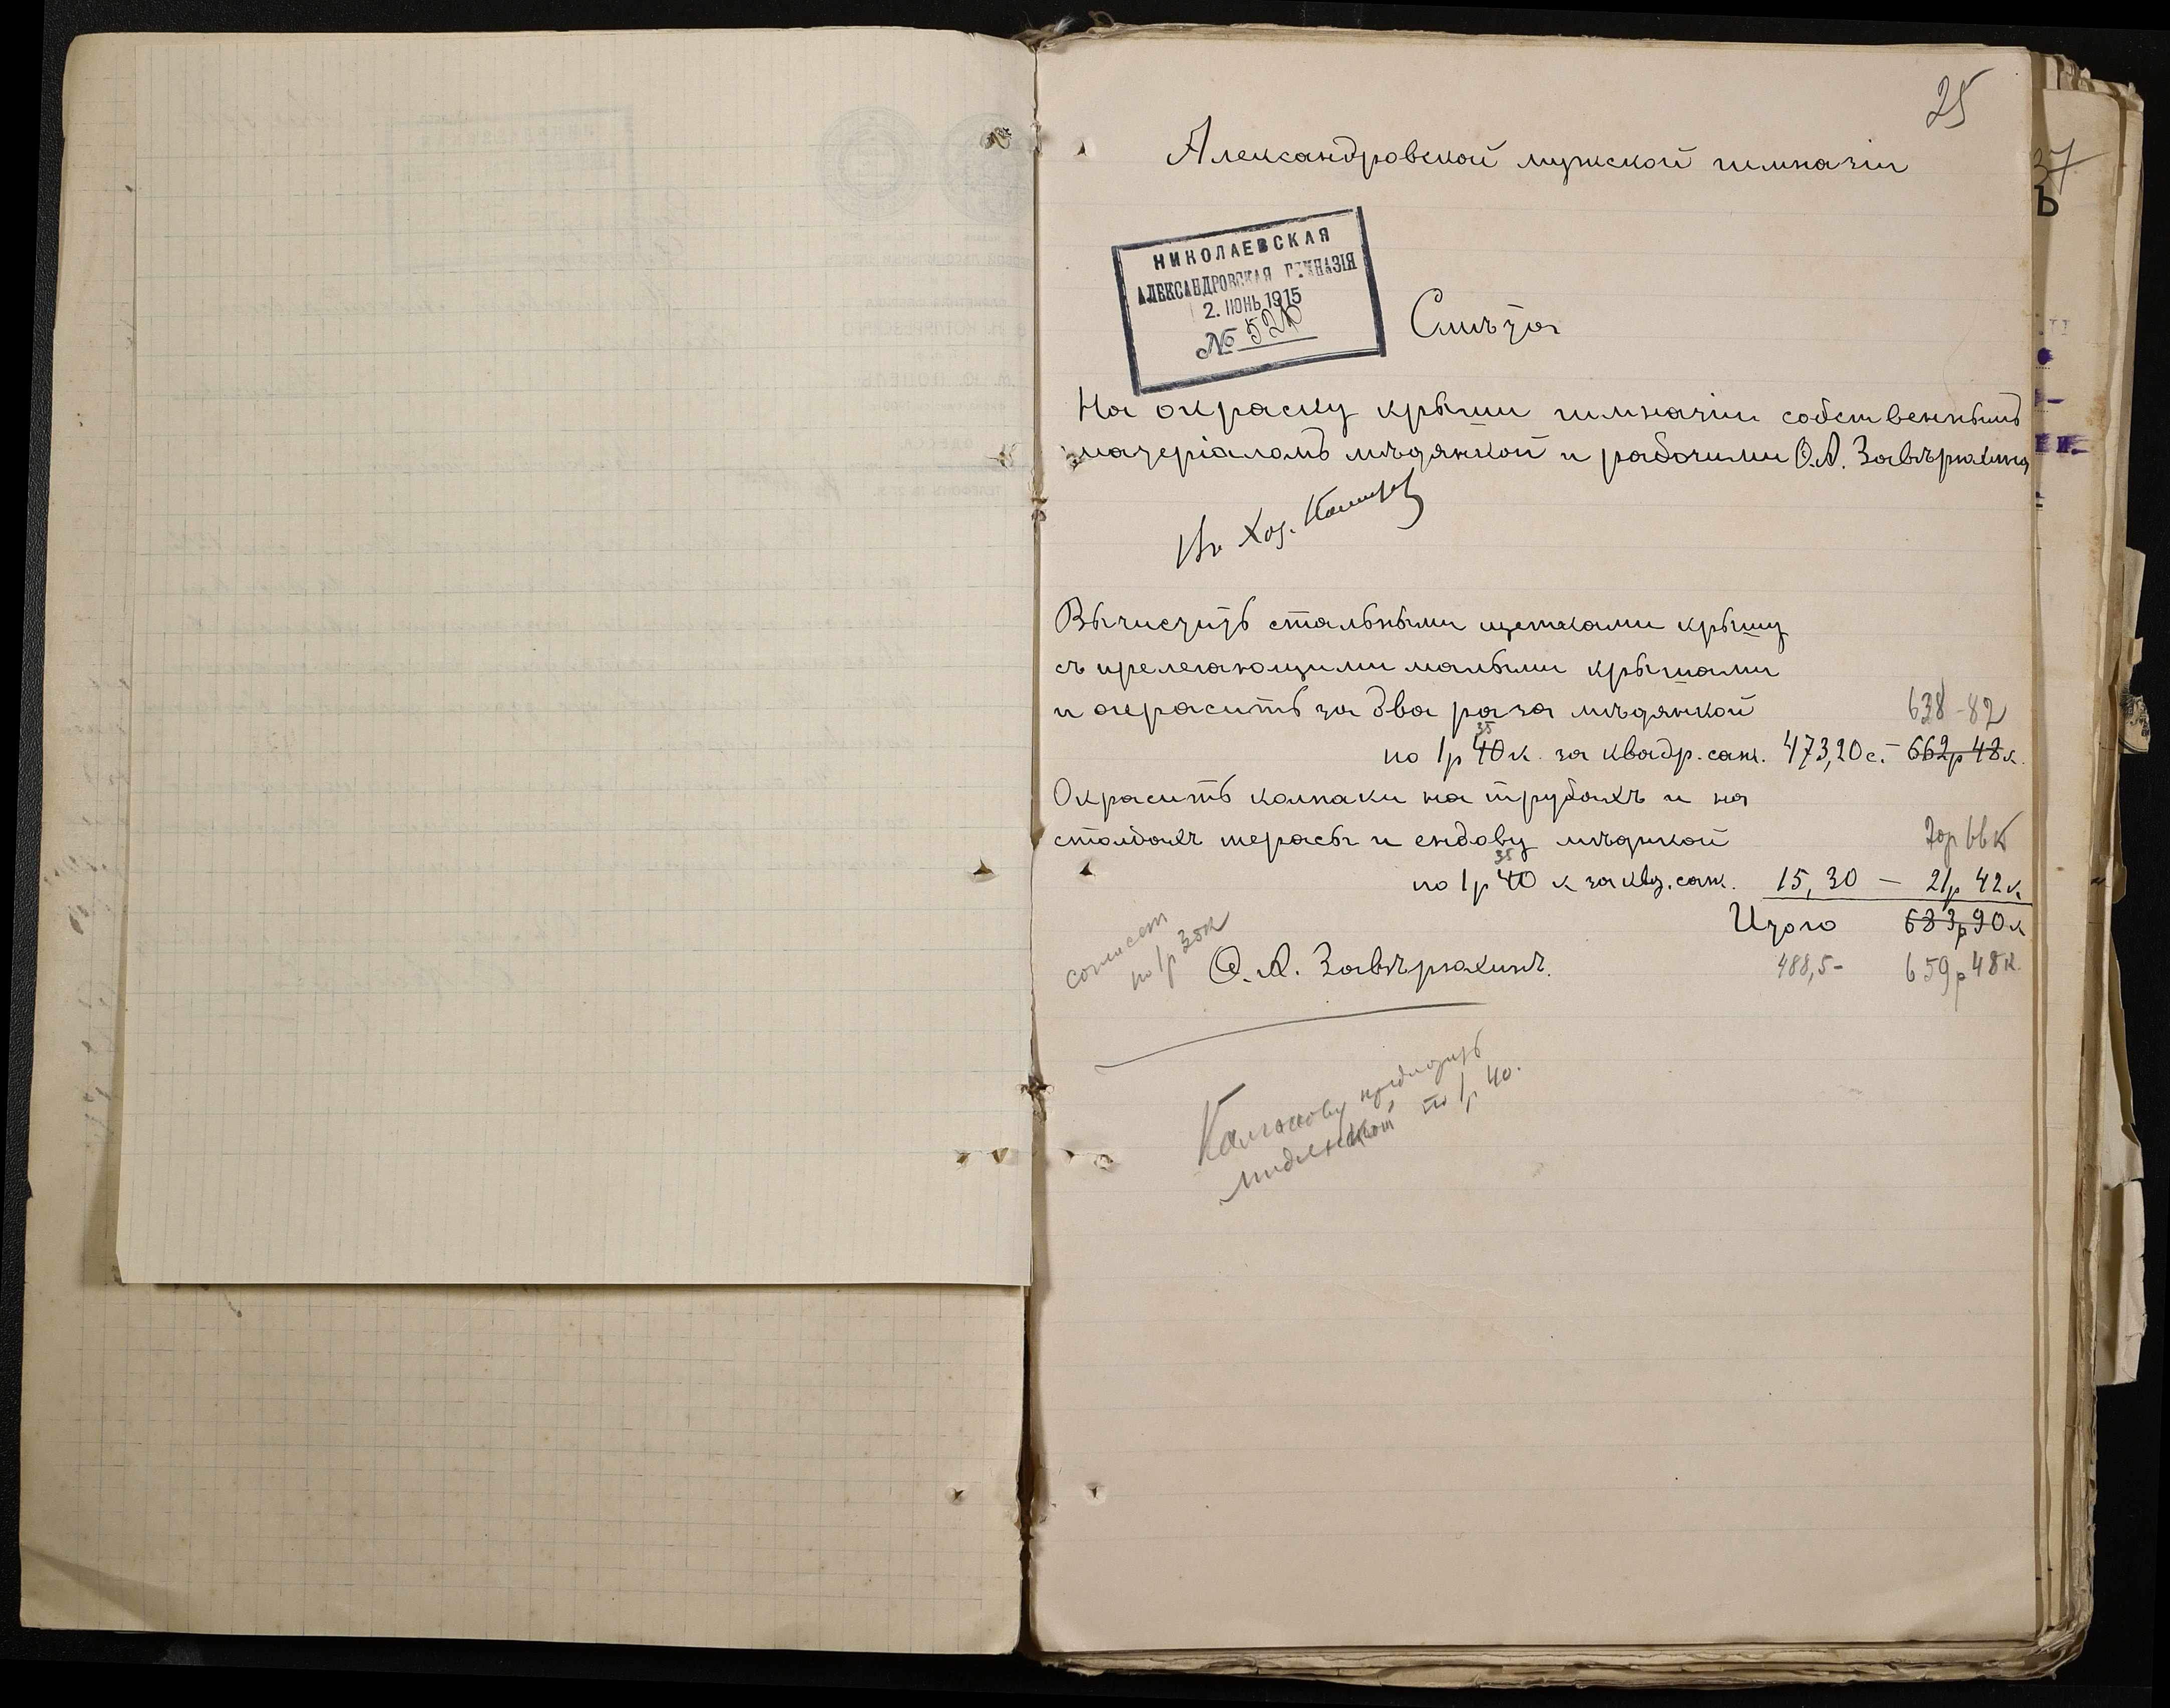 25
Александровской мужской гимназіи
НИКОЛАЕВСКАЯ
АЛЕКСАНДРОВСКАЯ ГИМНАЗІЯ
2. ІЮНЬ 1915
№ 520
Смѣта
На окраску крыши гимназіи собственнымъ
матеріаломъ мѣдянкой и рабочими Ѳ.А. Завѣрюхина
Въ Хоз.
Вычистить стальными щетками крышу
съ прелегающими малыми крышами
и окрасить за два раза мѣдянкой
638-82
35
по 1р 40к. за квадр. саж. 473,20с. – 662р 48к.
Окрасить колпаки на трубахъ и на
столбахъ терасы и ендову мѣдянкой
20р 66к
35
по 1р 40 к за квд. саж. 15,30 – 21р 42к.
Итого 683р 90к
согласен
по 1р 35к
Ѳ. А. Завѣрюхинъ.
488,5- 659р 48к.
предлагать
по 1р 40.
37
Ъ